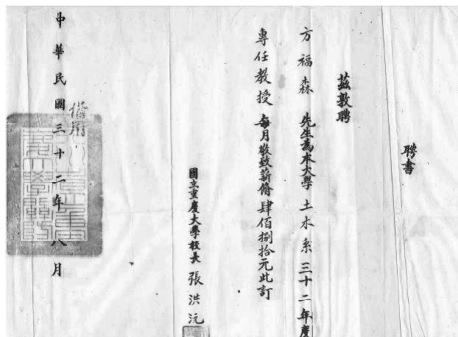 聘書
茲敦聘
方福森 先生為本大學 土木系三十二年度
專任教授 每月敬致薪脩肆佰捌拾元此訂
國立重慶大學校長 張洪沅
借用
中華民國三十二年八月